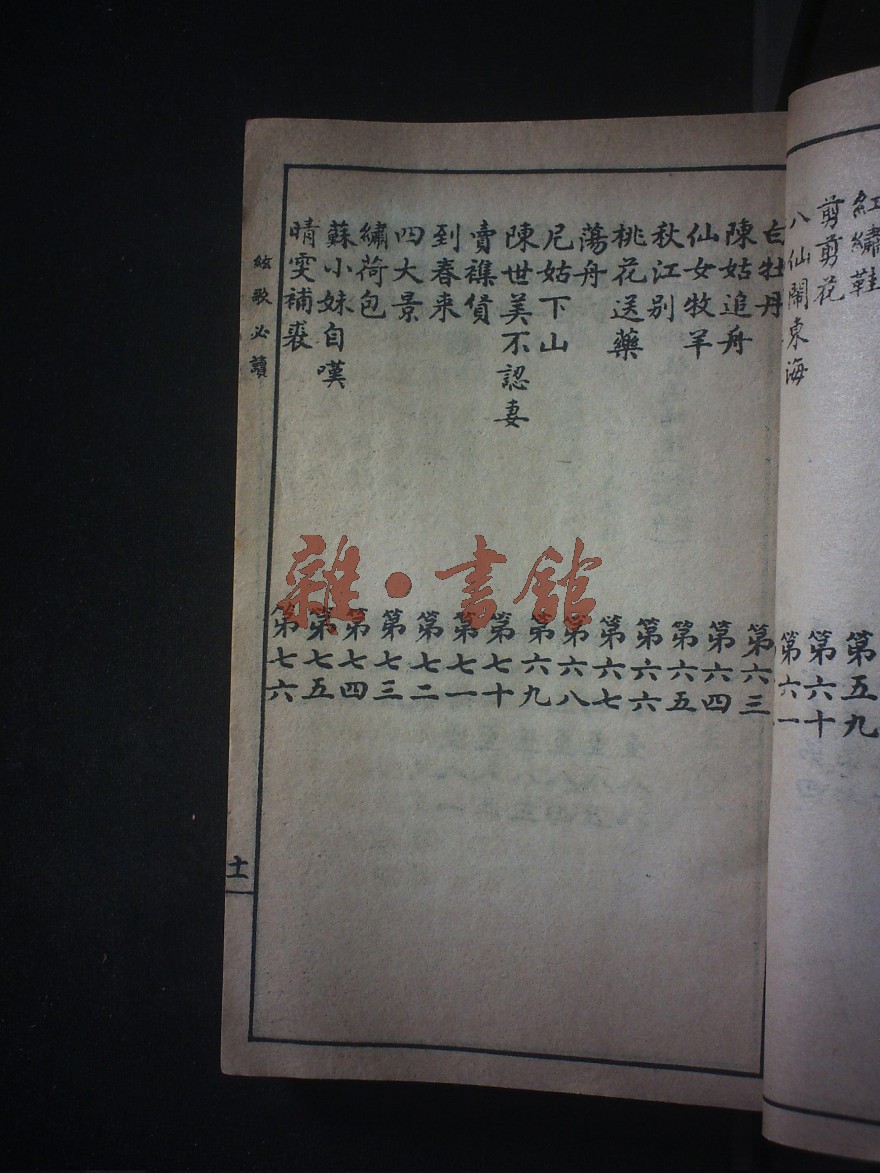 紅繡鞋 第五九
剪剪花 第六十
八仙鬧東海 第六一
白牡丹 第六三
陳姑追舟 第六四
仙女牧羊 第六五
秋江别 第六六
桃花送藥 第六七
蕩舟 第六八
尼姑下山 第六九
陳世美不認妻 第七十
賣襍貨 第七一
到春来 第七二
四大景 第七三
繡荷包 第七四
蘇小妹自嘆 第七五
晴雯補裘 第七六
絃歌必讀
十一
雜·書舘